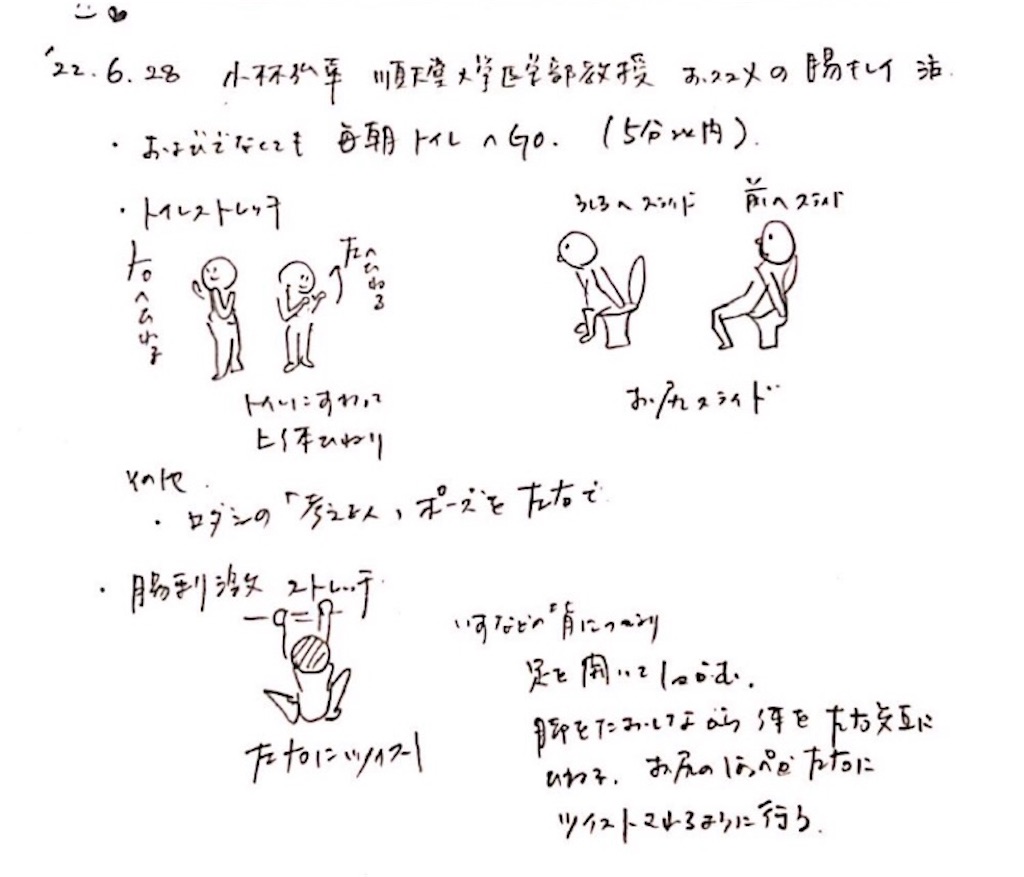 '22.6.28 小林弘幸 順天堂大学医学部教授 おススメの腸キレイ活
・およびでなくても 毎朝トイレへGO. (5分以内).
・トイレストレッチ
右へひねる
左へひねる
トイレにすわって
上体ひねり
うしろへスライド
前へスライド
お尻スライド
その他.
・ロダンの「考える人」ポーズを左右で
・腸刺激ストレッチ
左右にツイスト
いすなどの背につかまり
足を開いてしゃがむ.
脚をたおしながら 体を左右交互に
ひねる. お尻のほっぺが左右に
ツイストされるように行う.